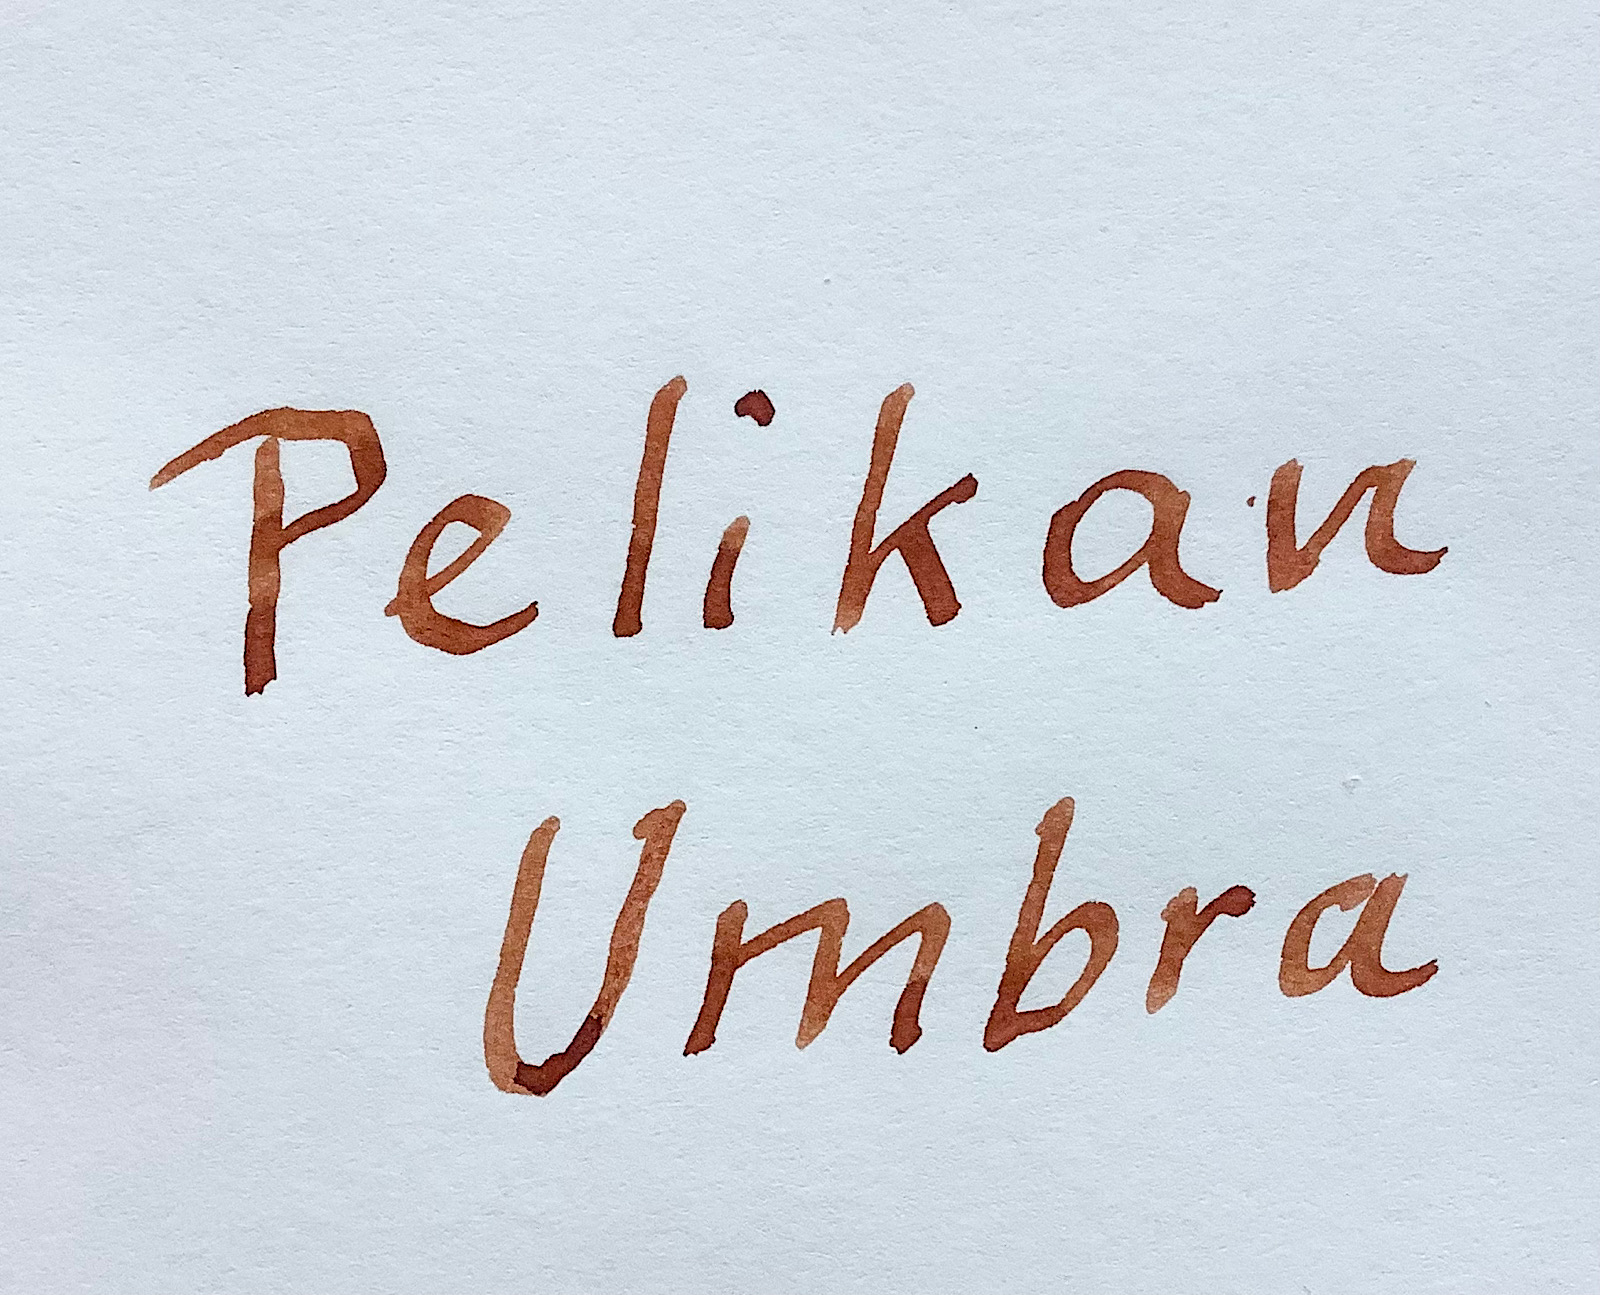 Pelikan
Umbra